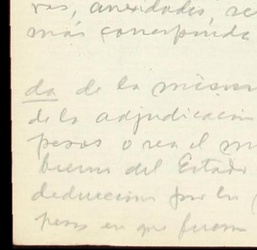 vas, anexidades, se
más corresponda
da de la misma
de la adjudicación
pesos o sea el m
bierno del Estado
deducción por lo
pesos en que fueron